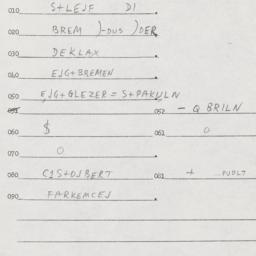 010 S+LEJF DI
020 BREM )-DUS )DER
030 DEKLAX
040 EJG+BREMEN
050 EJG+GLEZER = S+PAKULN
051 052 - Q BRILN
060 $ 061 0
070 0
080 CJS+DJBERT 081 + ...PUDLT
090 FARKEMCEJ